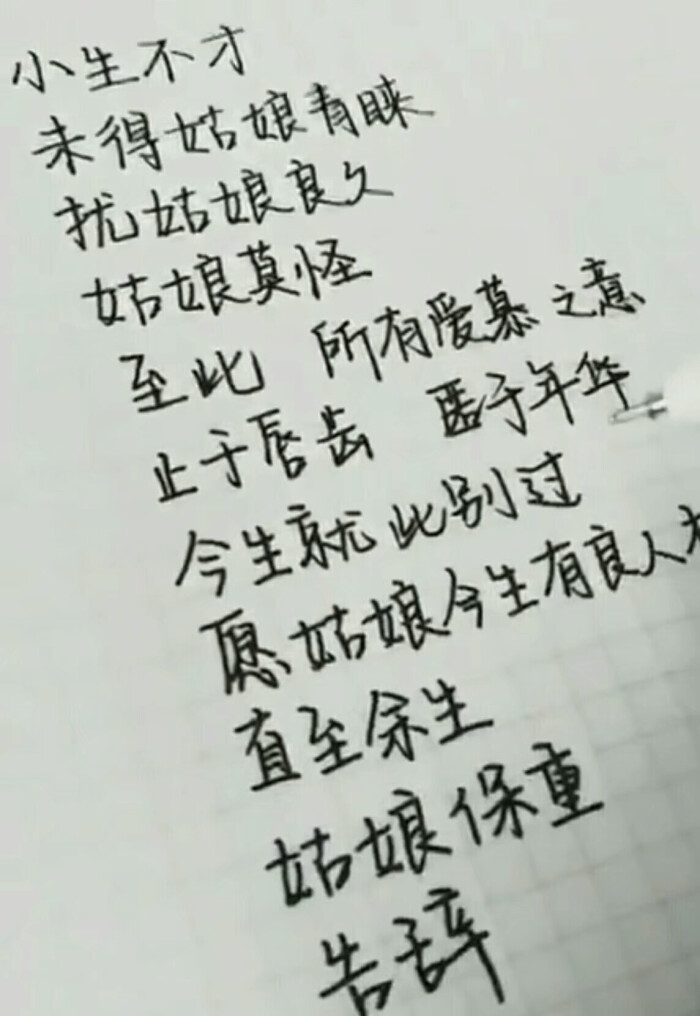 小生不才
未得姑娘青睐
扰姑娘良久
姑娘莫怪
至此 所有爱慕之意
止于唇齿 匿于年华
今生就此别过
愿姑娘今生有良人
直至余生
姑娘保重
告辞